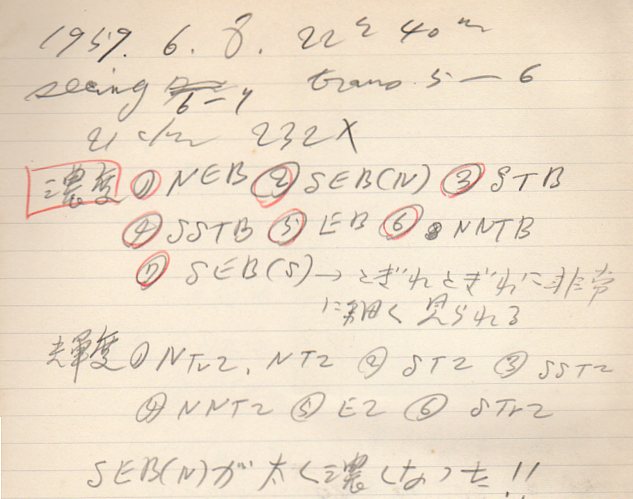 1959. 6. 8. 22h 40m
seeing 6-7 trans. 5-6
21 cm 232X
濃度 ① NEB ② SEB(N) ③ STB
④ SSTB ⑤ EB ⑥ NNTB
⑦ SEB(S)→とぎれとぎれに非常
に細く見られる
輝度 ① NTrZ, NTZ ② STZ ③ SSTZ
④ NNTZ ⑤ EZ ⑥ STrZ
SEB(N)が太く濃くなった!!